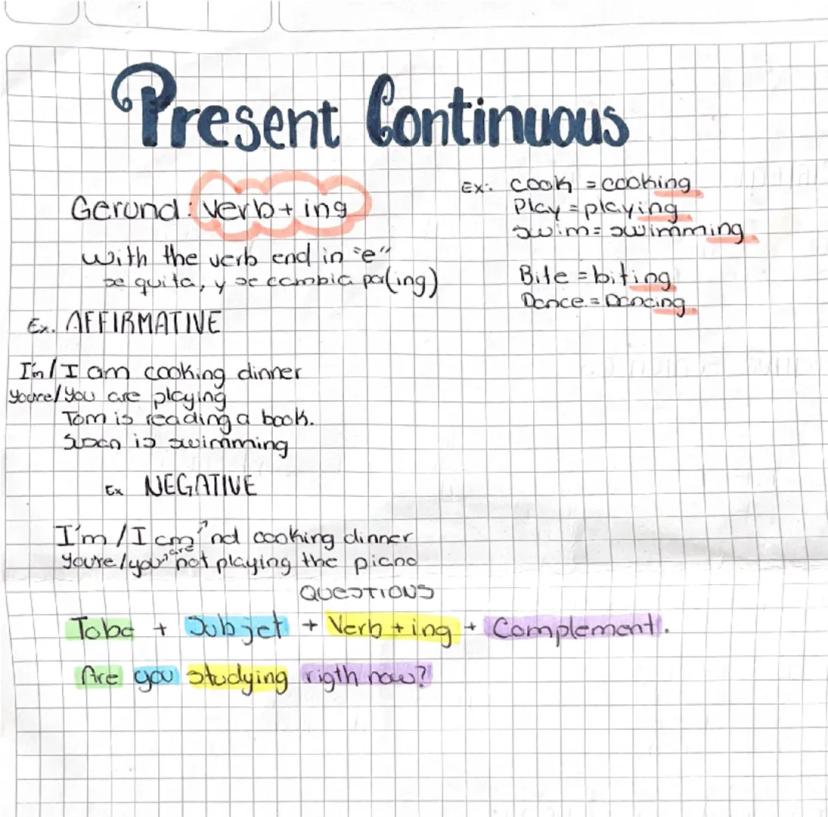 Present Continuous
Gerund: verb + ing
with the verb end in "e"
se quita, y se cambia pa(ing)
Ex: cook = cooking
Play = playing
swim = swimming
Bite = biting
Dance = Dancing
Ex. AFFIRMATIVE
I'm/I am cooking dinner
youre/you are playing
Tom is reading a book.
is swimming
Ex NEGATIVE
I'm/I am cooking dinner
youre/you are not playing the piano
QUESTIONS
Tobe + Subjet + Verb + ing + Complement.
Are you studying rigth now?